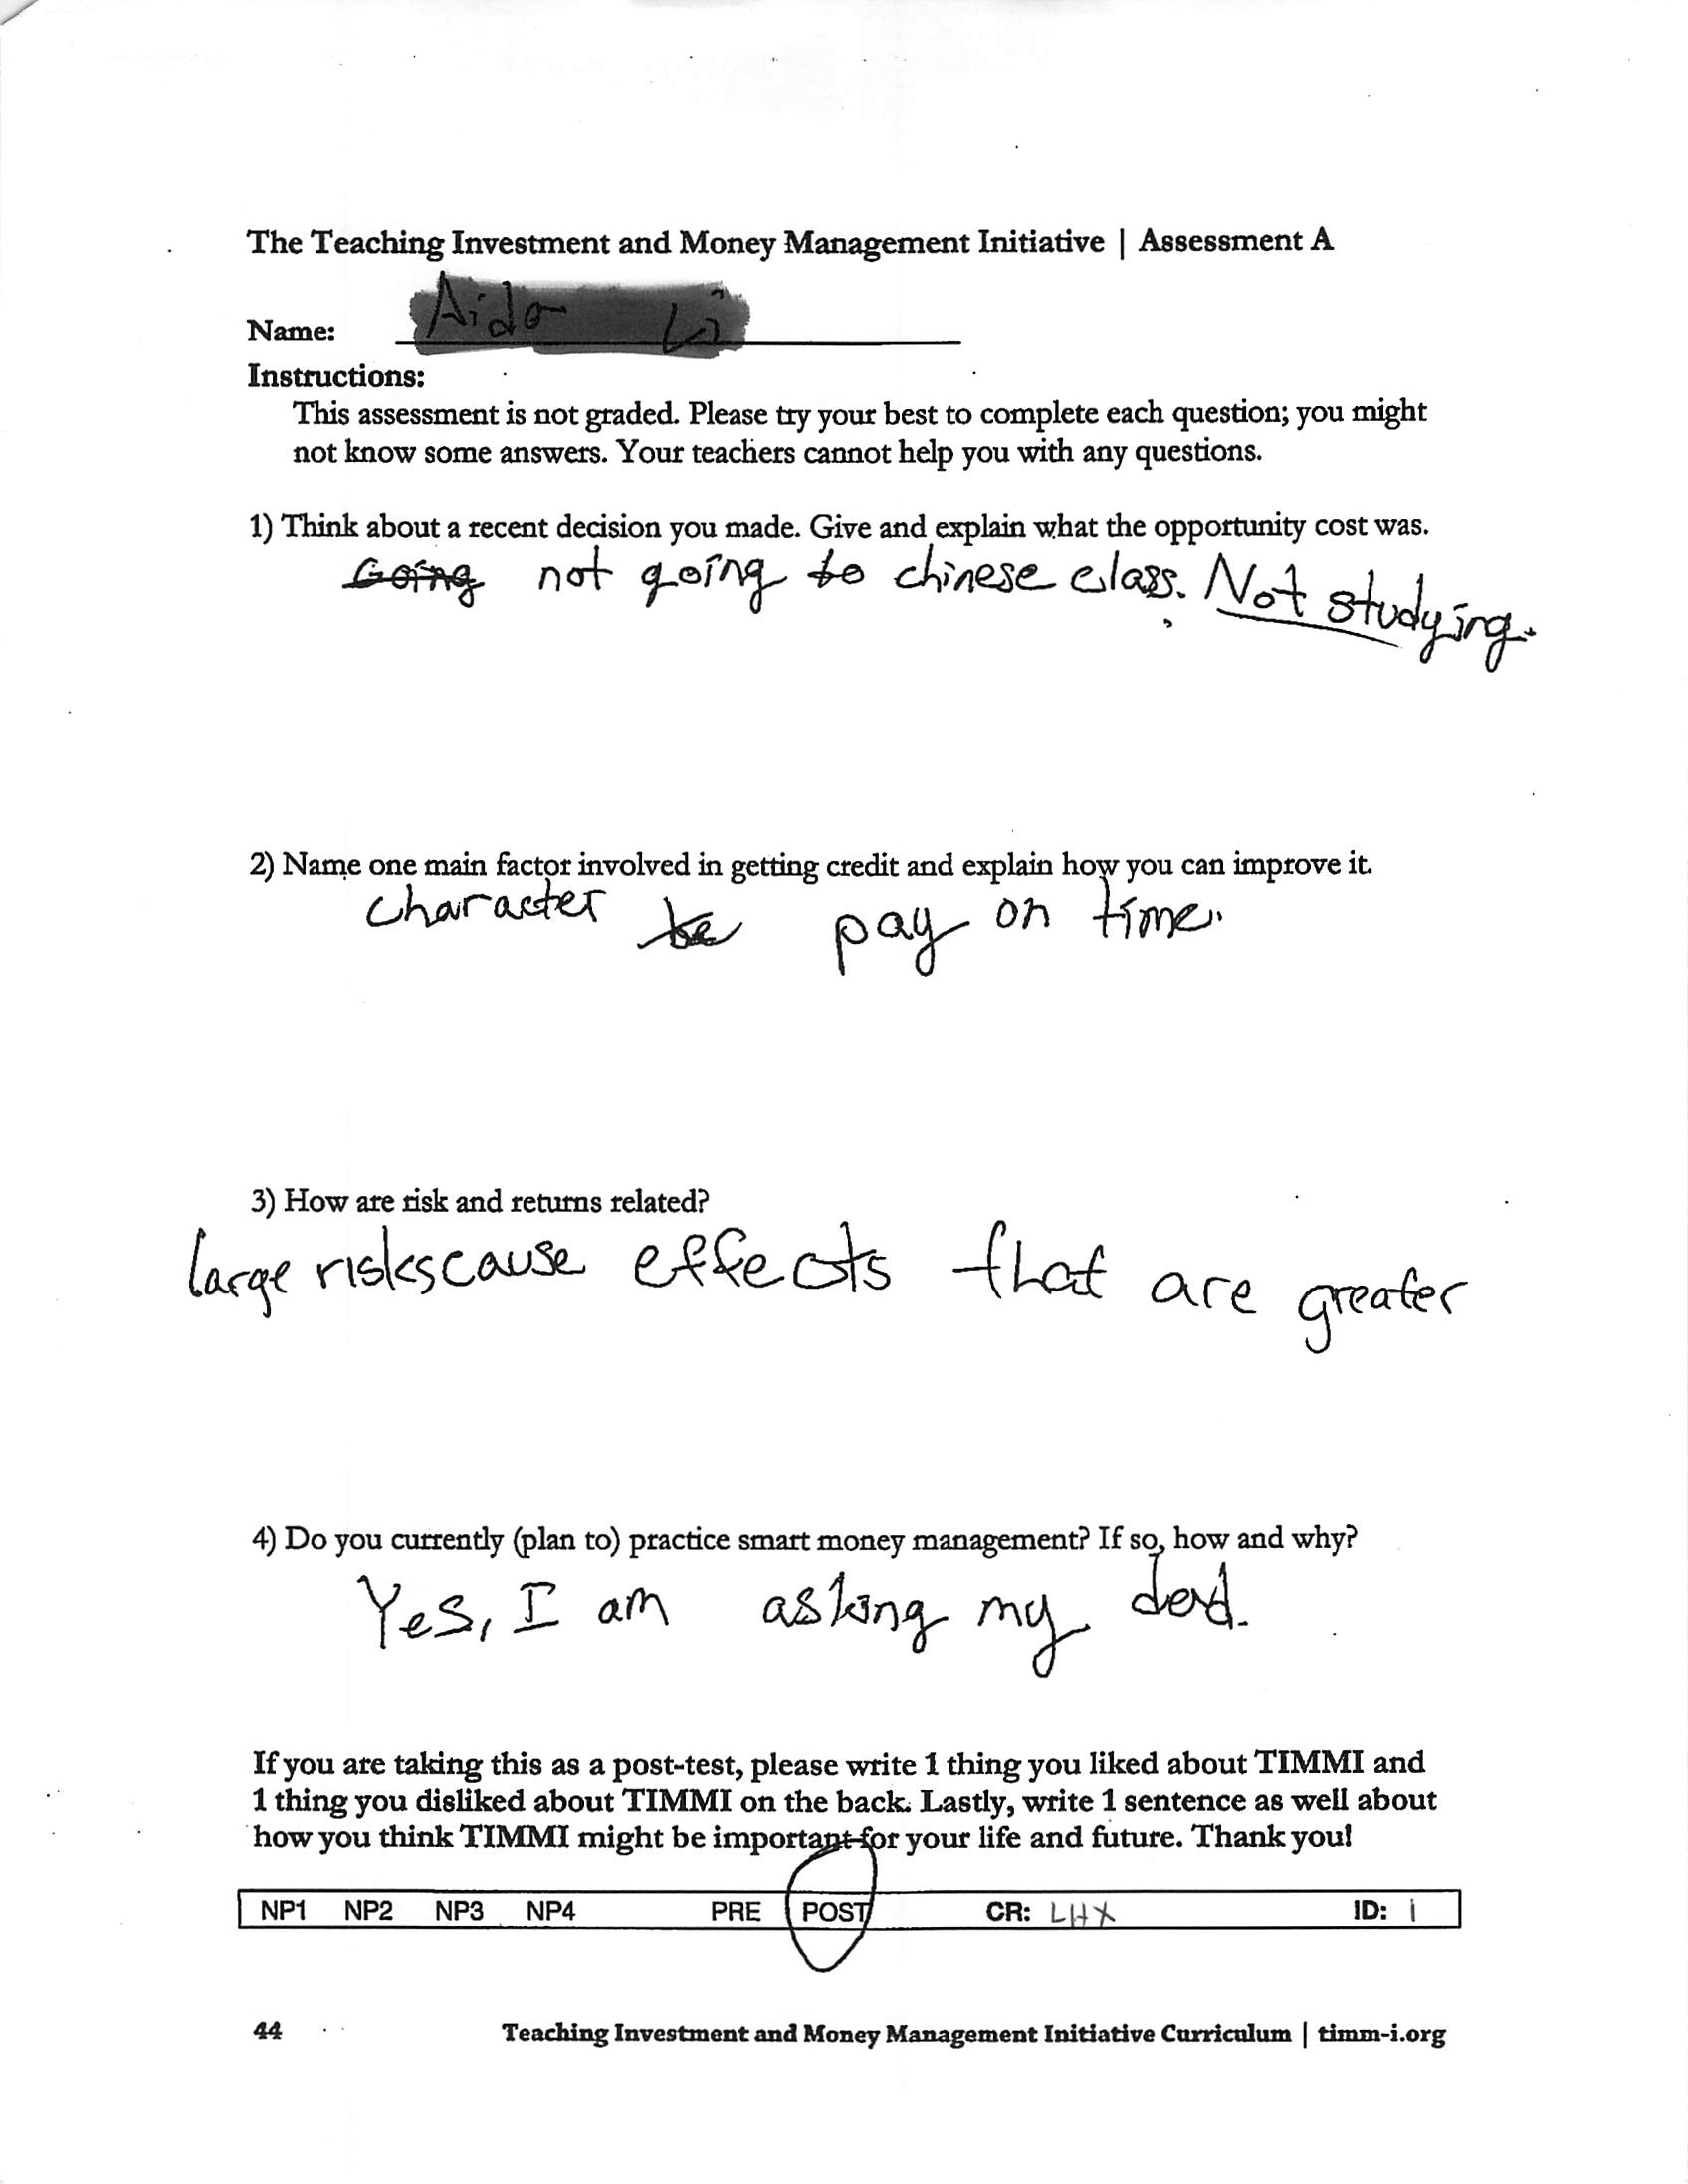 The Teaching Investment and Money Management Initiative | Assessment A
Name:
Instructions:
This assessment is not graded. Please try your best to complete each question; you might
not know some answers. Your teachers cannot help you with any questions.
1) Think about a recent decision you made. Give and explain what the opportunity cost was.
Going not going to chinese class. Not studying.
2) Name one main factor involved in getting credit and explain how you can improve it.
character be pay on time.
3) How are risk and returns related?
large risks cause effects that are greater
4) Do you currently (plan to) practice smart money management? If so, how and why?
Yes, I am asking my dad.
If you are taking this as a post-test, please write 1 thing you liked about TIMMI and
1 thing you disliked about TIMMI on the back. Lastly, write 1 sentence as well about
how you think TIMMI might be important for your life and future. Thank you!
NP1 NP2 NP3 NP4 PRE POST CR: LHX ID: 1
44 Teaching Investment and Money Management Initiative Curriculum | timm-i.org